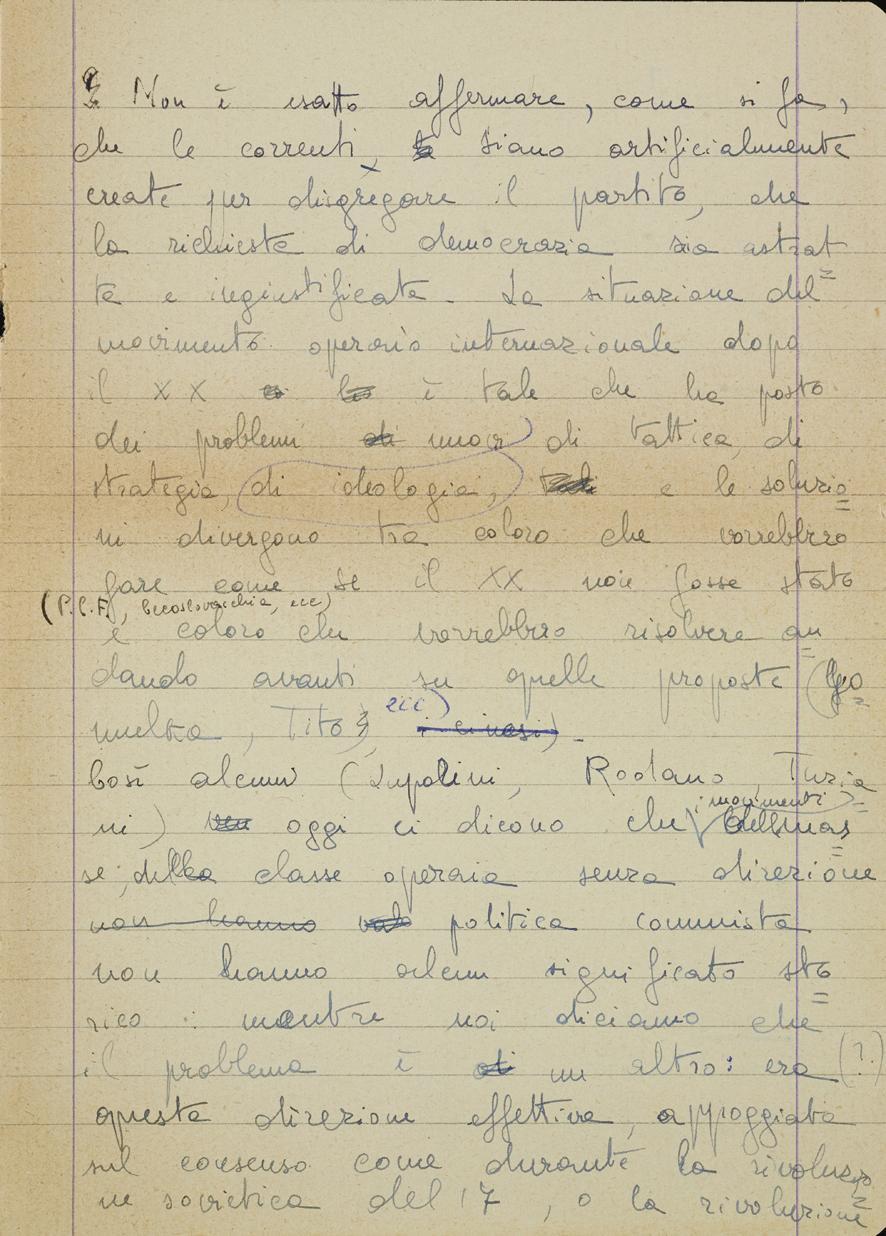 Non è esatto affermare, come si fa,
che le correnti, siano artificialmente
create per disgregare il partito, che
la richiesta di democrazia sia astrat=
ta e ingiustificata. La situazione del
movimento operaio internazionale dopo
il XX è tale che ha posto
dei problemi nuovi di tattica, di
strategia, di ideologia, e le soluzio=
ni divergono tra coloro che vorrebbero
fare come se il XX non fosse stato
(P.C.F., Cecoslovacchia, ecc)
e coloro che vorrebbero risolvere an=
dando avanti su quelle proposte (Go=
mulka, Tito, ecc)
i cinesi).
Così alcuni (Luporini, Rodano, Turia=
i movimenti
ni) oggi ci dicono che delle mas=
se, della classe operaia senza direzione
non hanno politica comunista
non hanno alcun significato sto=
rico: mentre noi diciamo che
il problema è un altro: era (?)
questa direzione effettiva, appoggiata
sul consenso come durante la rivoluzio=
ne sovietica del '17, o la rivoluzione